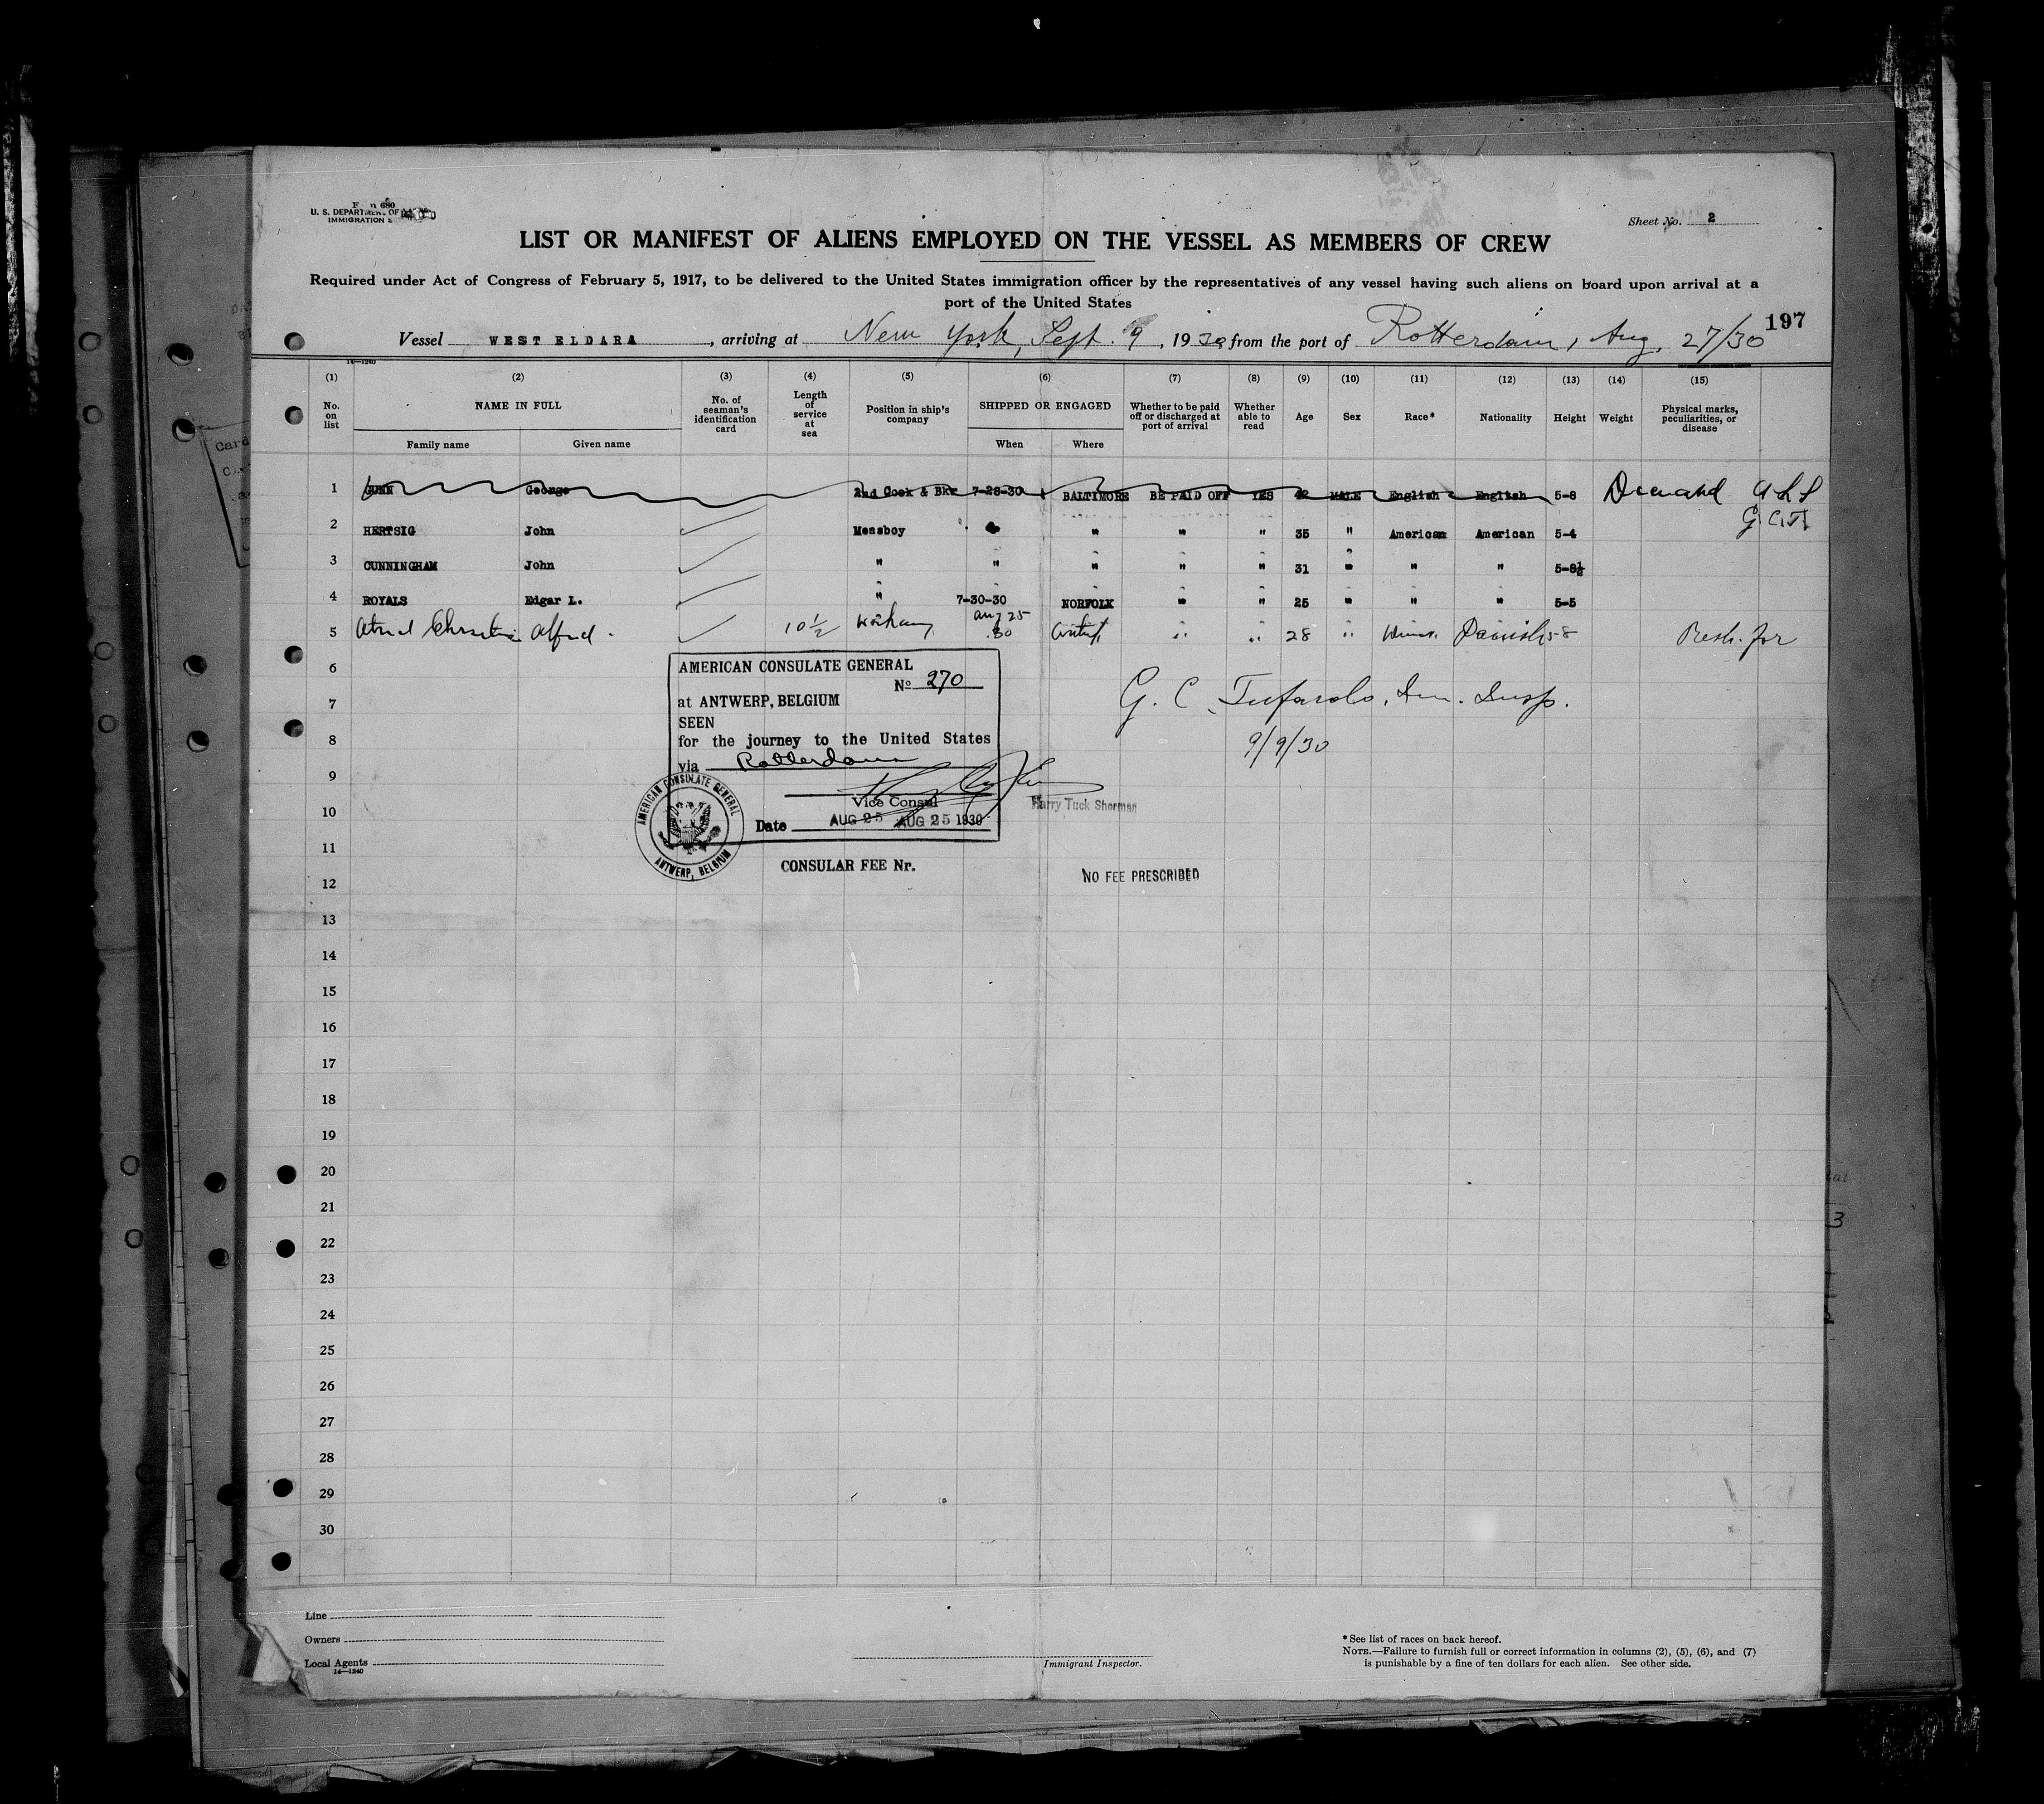 U. S. DEPARTMENT OF
IMMIGRATION
Sheet No. 2
LIST OR MANIFEST OF ALIENS EMPLOYED ON THE VESSEL AS MEMBERS OF CREW
Required under Act of Congress of February 5, 1917, to be delivered to the United States immigration officer by the representatives of any vessel having such aliens on board upon arrival at a
port of the United States
197
Vessel WEST ELDARA, arriving at New York, Sept. 9, 1930 from the port of Rotterdam, Aug. 27/30
14—1240
(1) (2) (3) (4) (5) (6) (7) (8) (9) (10) (11) (12) (13) (14) (15)
No. on list NAME IN FULL Family name Given name No. of seaman's identification card Length of service at sea Position in ship's company SHIPPED OR ENGAGED When Where Whether to be paid off or discharged at port of arrival Whether able to read Age Sex Race* Nationality Height Weight Physical marks, peculiarities, or disease
1 GUNN George 2nd Cook & Bkr 7-28-30 BALTIMORE BE PAID OFF YES 42 MALE English English 5-8
2 HERTSIG John Messboy " " " 35 " American American 5-4
3 CUNNINGHAM John " " " " " 31 " " " 5-8½
4 ROYALS Edgar L. " 7-30-30 NORFOLK " " 25 " " " 5-5
5 Alfred 10½ Aug 25 30 " " 28 " Danish 5-8
6
7
8
9
10
11
12
13
14
15
16
17
18
19
20
21
22
23
24
25
26
27
28
29
30
AMERICAN CONSULATE GENERAL
No 270
at ANTWERP, BELGIUM
SEEN
for the journey to the United States
via Rotterdam
Vice Consul
Harry Tuck Sherman
Date AUG 25 AUG 25 1930
AMERICAN CONSULATE GENERAL
ANTWERP, BELGIUM
CONSULAR FEE Nr.
NO FEE PRESCRIBED
G. C. Tufarolo, Im. Insp.
9/9/30
Line
Owners
Local Agents
14—1240
Immigrant Inspector.
* See list of races on back hereof.
NOTE.—Failure to furnish full or correct information in columns (2), (5), (6), and (7)
is punishable by a fine of ten dollars for each alien. See other side.